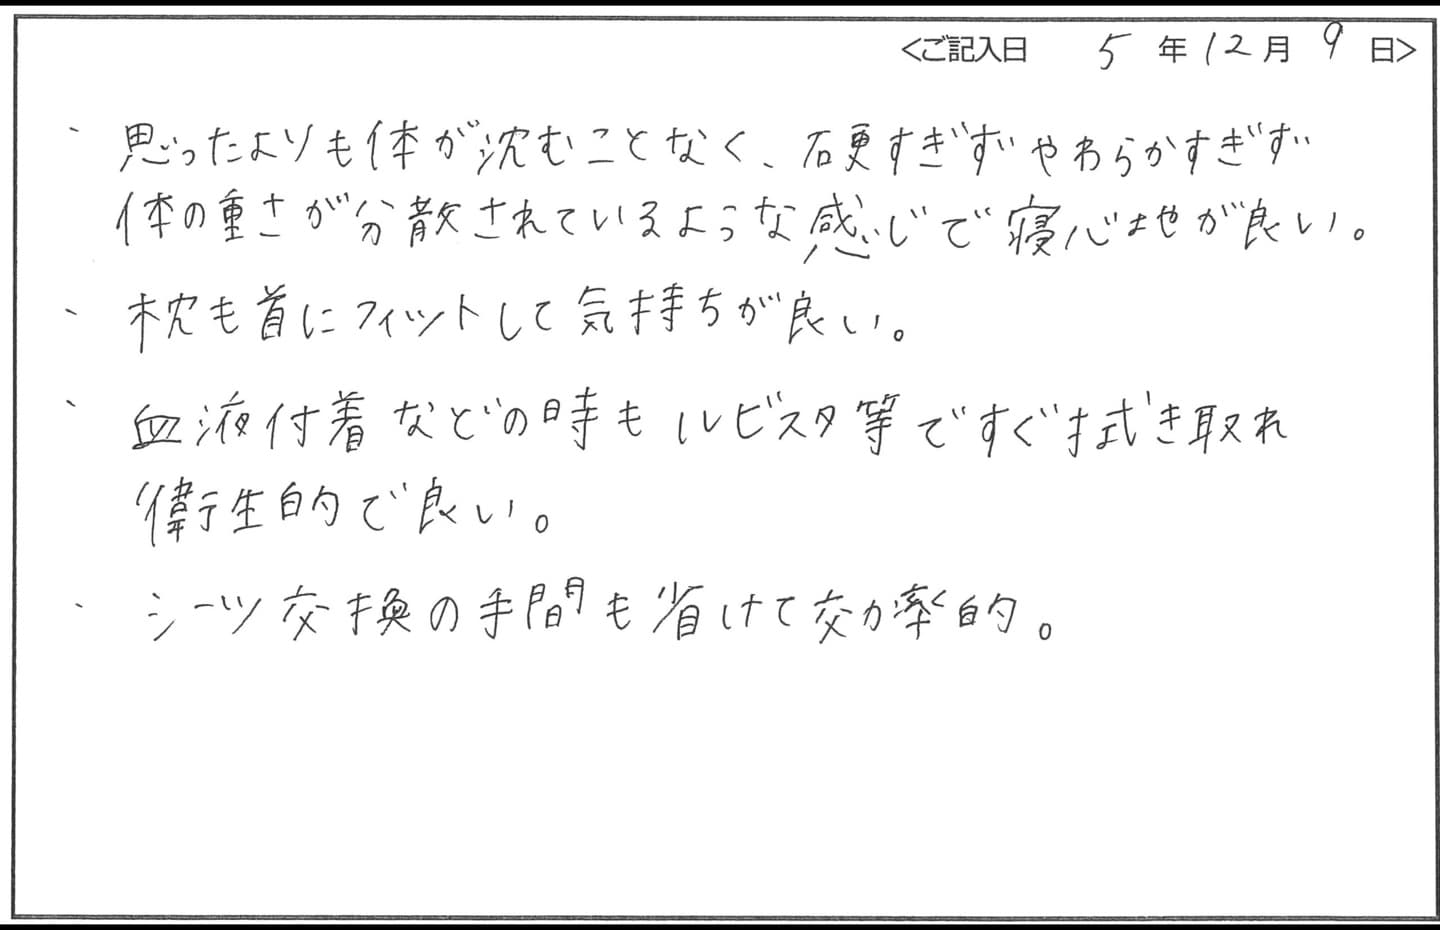 <ご記入日 5年12月9日>
・思ったよりも体が沈むことなく、硬すぎずやわらかすぎず
体の重さが分散されているような感じで寝心地が良い。
・枕も首にフィットして気持ちが良い。
・血液付着などの時もルビスタ等ですぐ拭き取れ
衛生的で良い。
・シーツ交換の手間も省けて効率的。